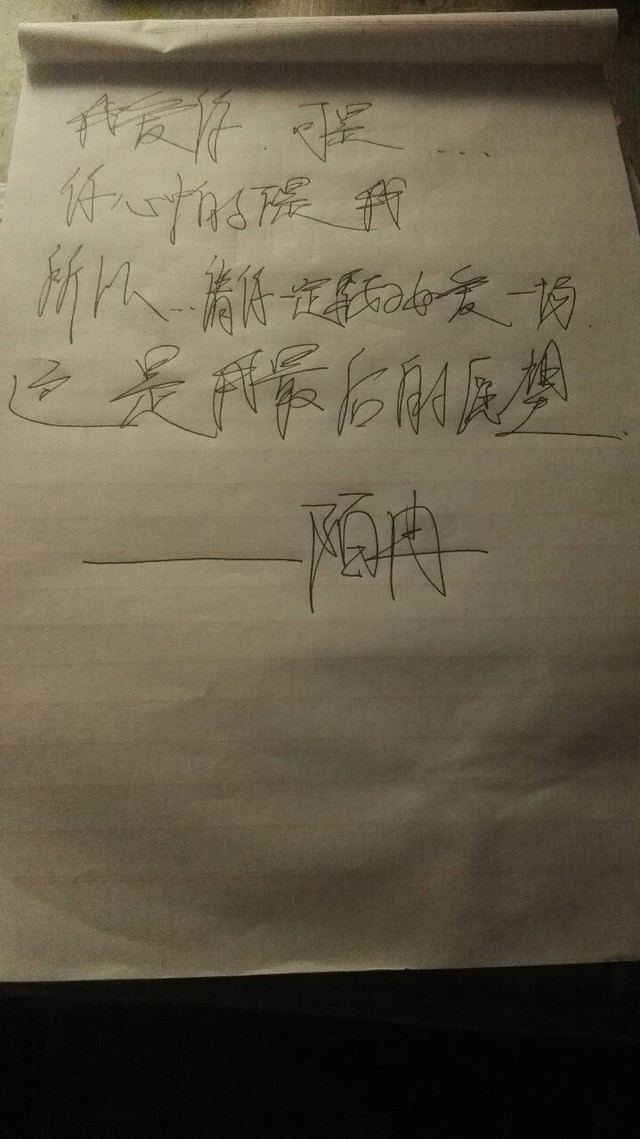 我爱你.可是...
你心中的不是我
所以...请你一定要好好爱一场.
这是我最后的愿望.
——陌冉